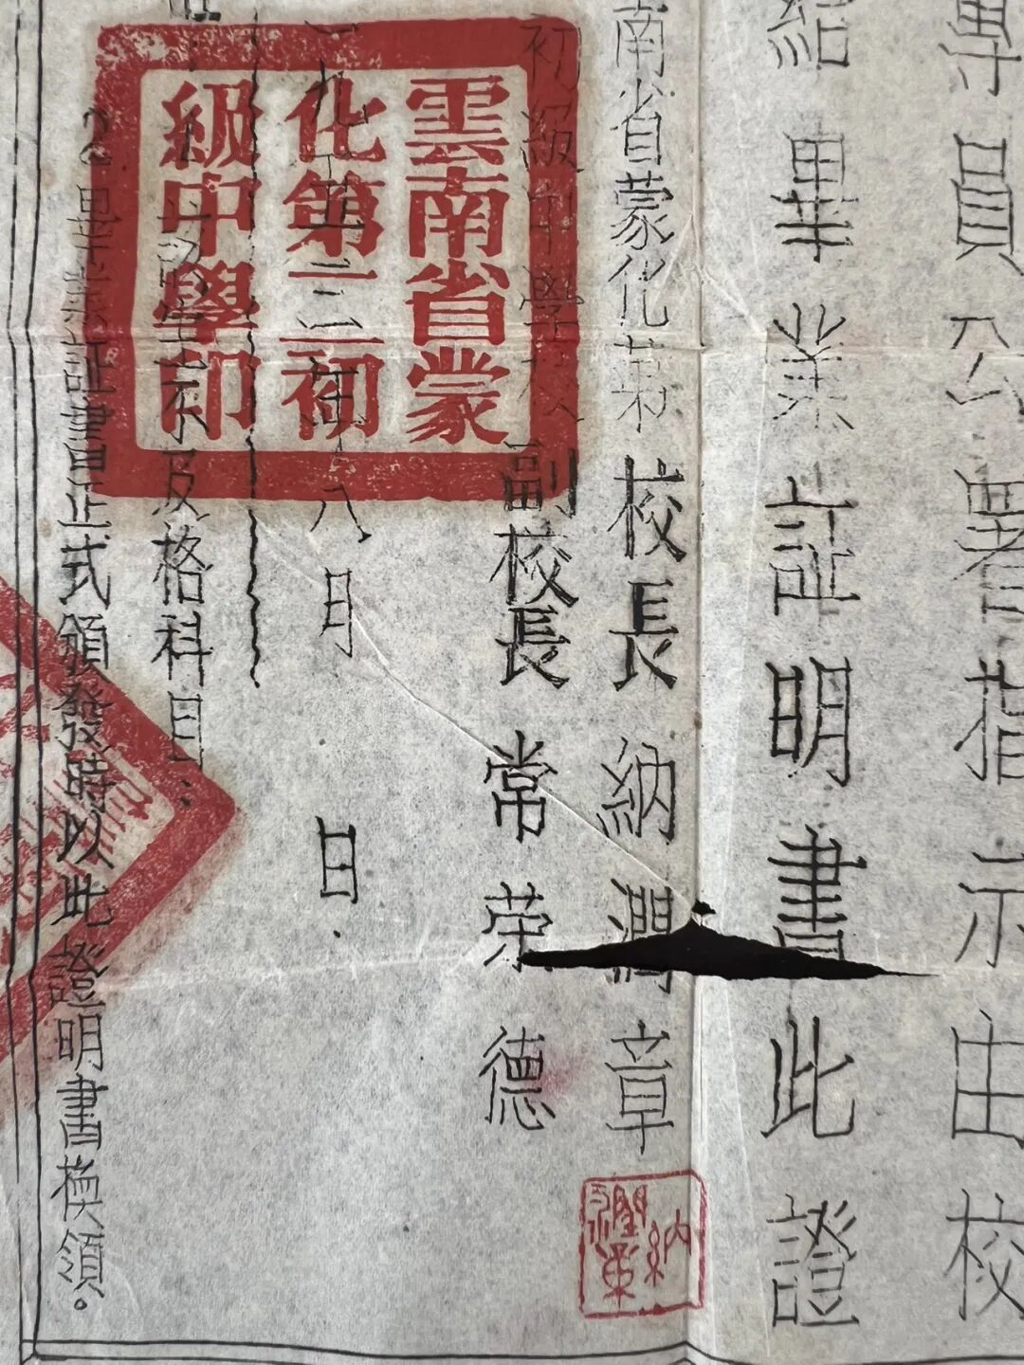 專員公署指示由校
給畢業証明書此證
南省蒙化第 校長 納潤章
初級中學校 副校長 常荣德
八月 日.
不及格科目:
2.畢業証書正式頒發時以此證明書換領。
雲南省蒙
化第二初
級中學印
納
潤章